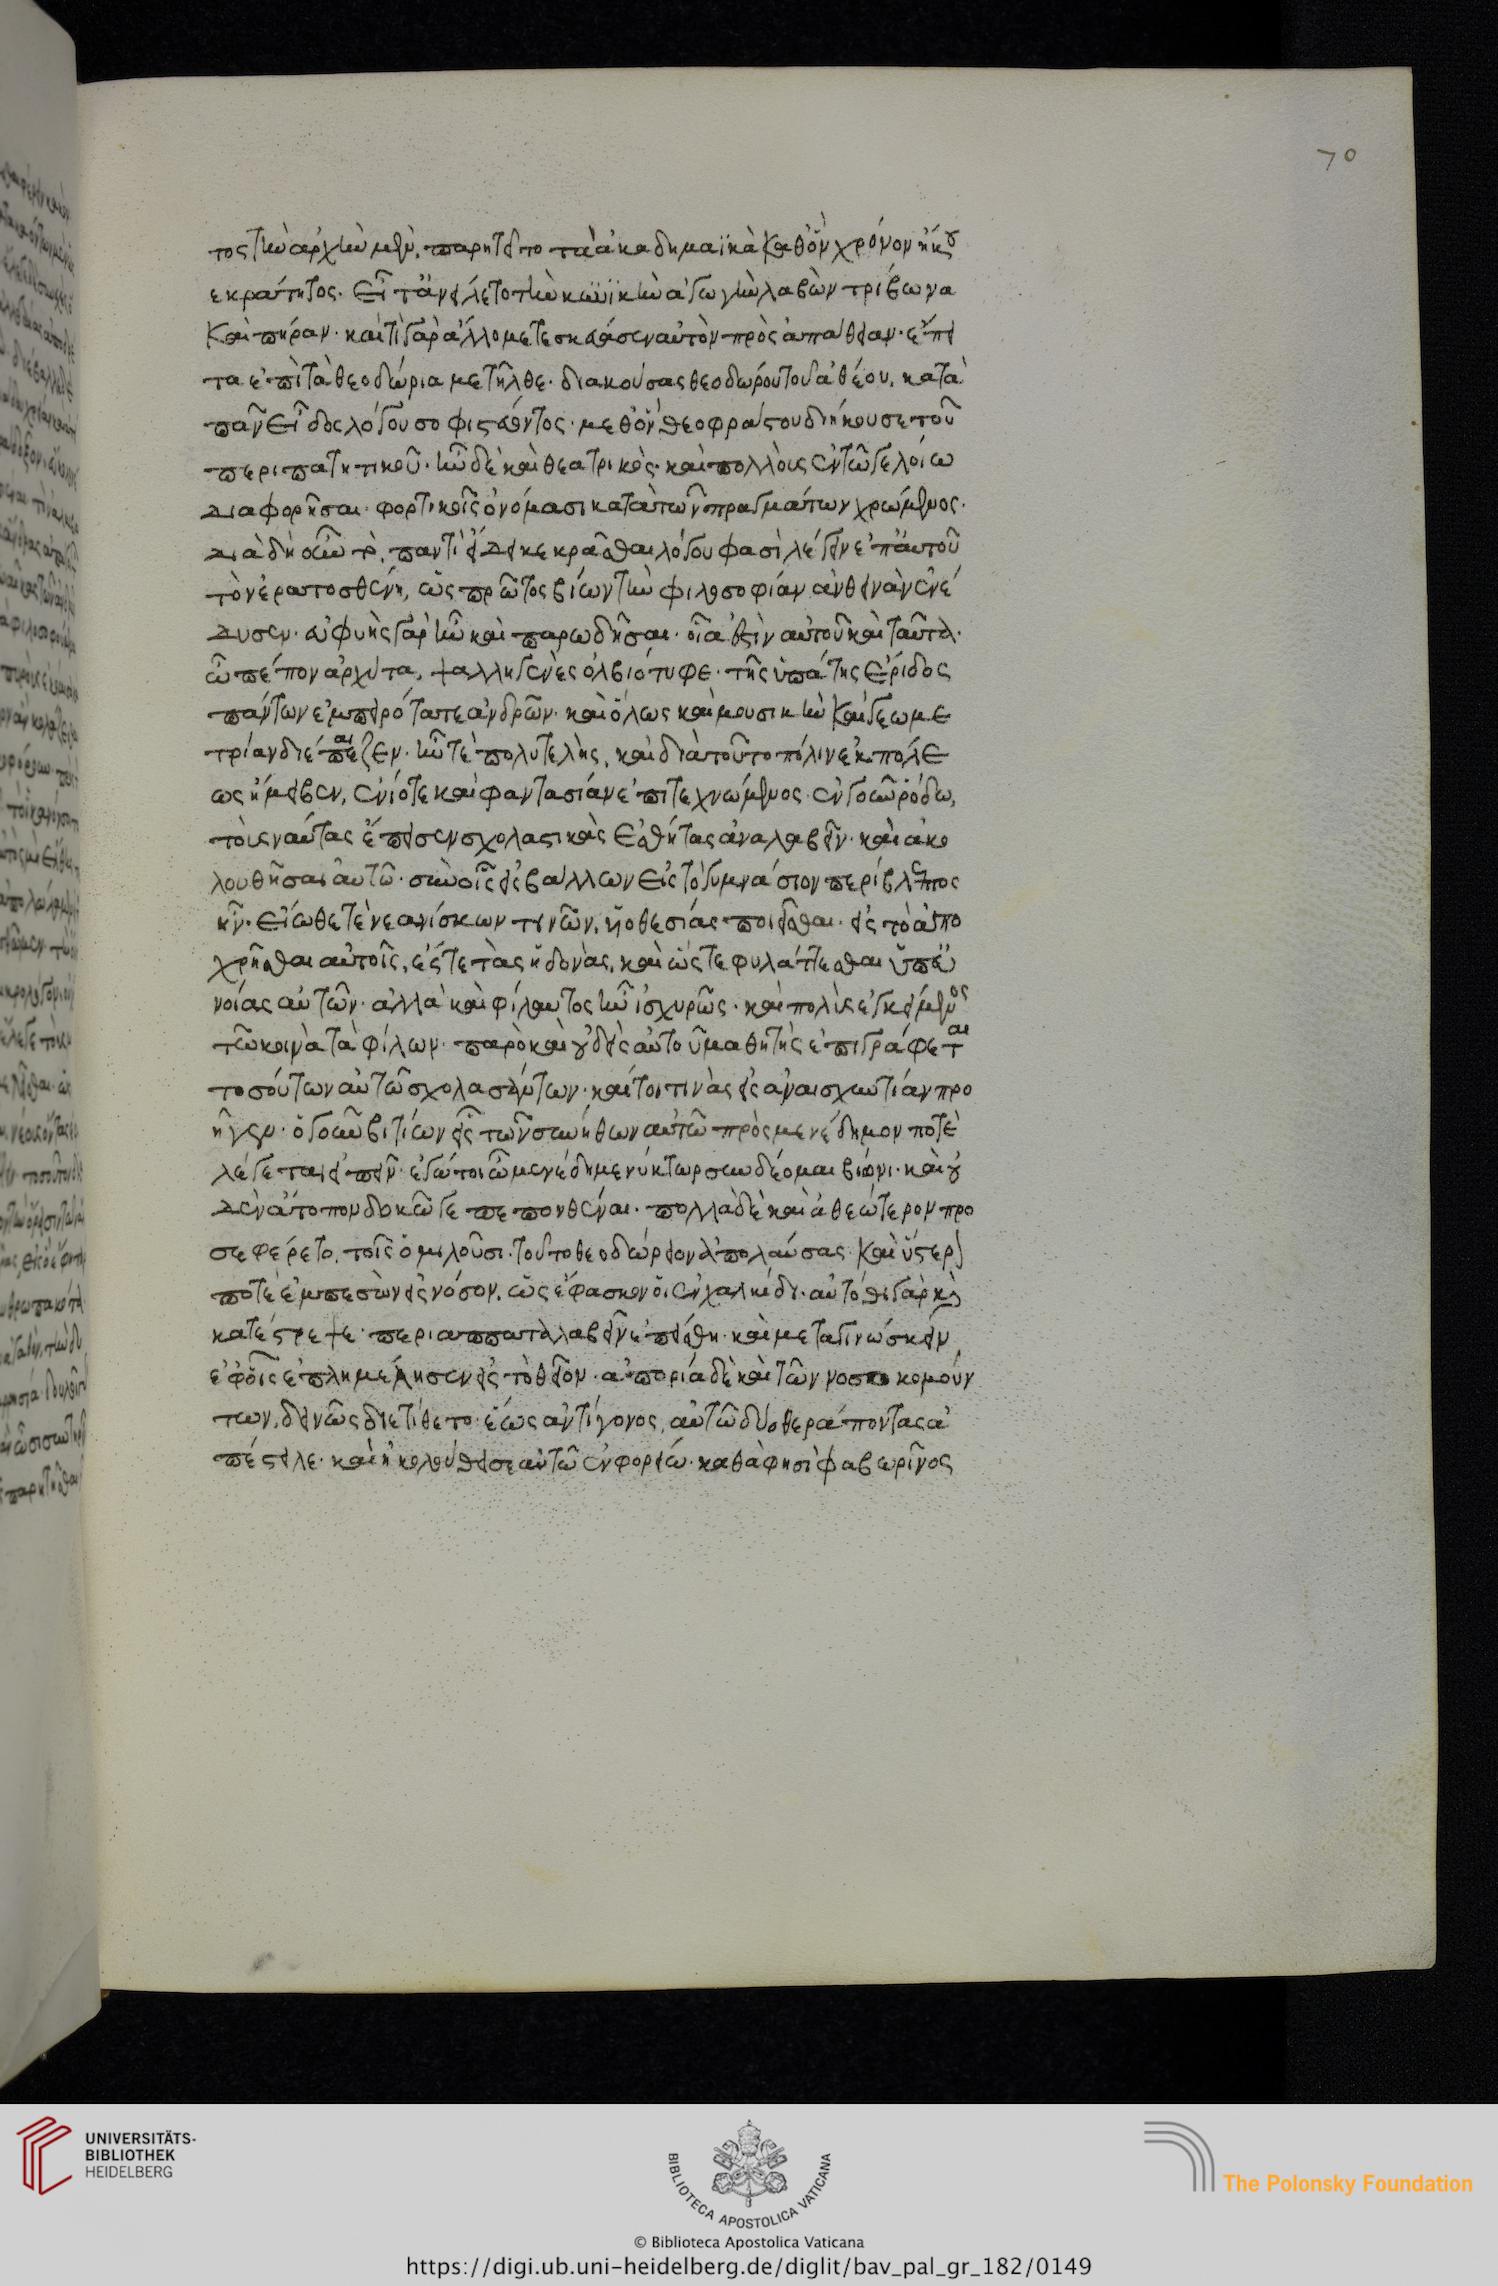 70
τος τὴν ἀρχὴν μὲν, παρητεῖτο τὰ ἀκαδημαϊκὰ καθ' ὃν χρόνον ἤκου
ε κράτητος. εἶτ' ἀνείλετο τὴν κυνϊκὴν ἀγωγὴν λαβὼν τρίβωνα
καὶ πήραν. καὶ τί γὰρ ἄλλο μετεσκεύασεν αὐτὸν πρὸς ἀπάθειαν. ἔπει
τα ἐπὶ τὰ θεοδώρια μετῆλθε. διακούσας θεοδώρου τοῦ ἀθέου, κατὰ
πᾶν εἶδος λόγου σοφιστεύοντος. μεθ' ὃν θεοφράστου διήκουσε τοῦ
περιπατητικοῦ. ἦν δὲ καὶ θεατρικὸς. καὶ πολλοὺς ἐν τῶ γελοίω
διαφορῆσαι. φορτικοῖς ὀνόμασι κατὰ τῶν πραγμάτων χρώμενος.
διὰ δὴ οὖν τὸ, παντὶ εἴδει κεκρᾶσθαι λόγου φασὶ λέγειν ἐπ' αὐτοῦ
τὸν ἐρατοσθένη, ὡς πρῶτος βίων τὴν φιλοσοφίαν ἀνθεινὰ ἐνέ
δυσεν. εὐφυὴς γὰρ ἦν καὶ παρωδῆσαι. οἷα ἐστὶν αὐτοῦ καὶ ταῦτα.
ὦ πέπον ἀρχύτα, ψαλληγενὲς ὀλβιότυφε. τῆς ὑπάτης ἔριδος
πάντων ἐμπειρότατε ἀνδρῶν. καὶ ὅλως καὶ μουσικὴν καὶ γεωμε
τρίαν διέπαιζεν. ἦν τὲ πολυτελὴς, καὶ διὰ τοῦτο πόλιν ἐκ πόλε
ως ἤμειβεν, ἐνίοτε καὶ φαντασίαν ἐπιτεχνώμενος. ἐν γοῦν ῥόδω,
τοὺς ναύτας ἔπεισεν σχολαστικὰς ἐσθήτας ἀναλαβεῖν. καὶ ἀκο
λουθῆσαι αὐτῶ. σὺν οἷς εἰσβάλλων εἰς τὸ γυμνάσιον περίβλεπτος
ἦν. εἰώθε τὲ νεανίσκων τινῶν, υἱοθεσίας ποιεῖσθαι. εἰς τὸ ἀπο
χρῆσθαι αὐτοῖς, ἔς τε τὰς ἡδονὰς, καὶ ὥστε φυλάττεσθαι ὑπ' εὐ
νοίας αὐτῶν. ἀλλὰ καὶ φίλαυτος ἦν ἰσχυρῶς. καὶ πολὺς ἐγκείμενος
τῶ κοινὰ τὰ φίλων. παρὸ καὶ οὐδεὶς αὐτοῦ μαθητὴς ἐπιγράφεται
τοσούτων αὐτῶ σχολασάντων. καίτοι τινὰς εἰς ἀναισχυντίαν προ
ῆγεν. ὁ γοῦν βιτίων εἷς τῶν συνήθων αὐτῶ πρὸς μενέδημον ποτὲ
λέγεται εἰπεῖν. ἐγώ τοι ὦ μενέδημε νύκτωρ συνδέομαι βίωνι. καὶ οὐ
δὲν ἄτοπον δοκῶ γε πεπονθέναι. πολλὰ δὲ καὶ ἀθεώτερον προ
σεφέρετο. τοῖς ὁμιλοῦσι. τοῦτο θεοδώρειον ἀπολαύσας. καὶ ὕστερον
ποτὲ ἐμπεσὼν εἰς νόσον, ὡς ἔφασκον οἱ ἐν χαλκίδι. αὐτόθι γὰρ καὶ
κατέστρεψε. περιάππτα λαβεῖν ἐπείσθη. καὶ μεταγινώσκειν
ἐφ' οἷς ἐπλημμέλησεν εἰς τὸ θεῖον. ἀπορία δὲ καὶ τῶν νοσοκομούν
των, δεινῶς διετίθετο. ἕως ἀντίγονος, αὐτῶ δύο θεράποντας ἀ
πέστειλε. καὶ ἠκολούθει γε αὐτῶ ἐν φορείω. καθὰ φησὶ φαβωρῖνος
UNIVERSITÄTS-
BIBLIOTHEK
HEIDELBERG
BIBLIOTECA APOSTOLICA VATICANA
The Polonsky Foundation
© Biblioteca Apostolica Vaticana
https://digi.ub.uni-heidelberg.de/diglit/bav_pal_gr_182/0149